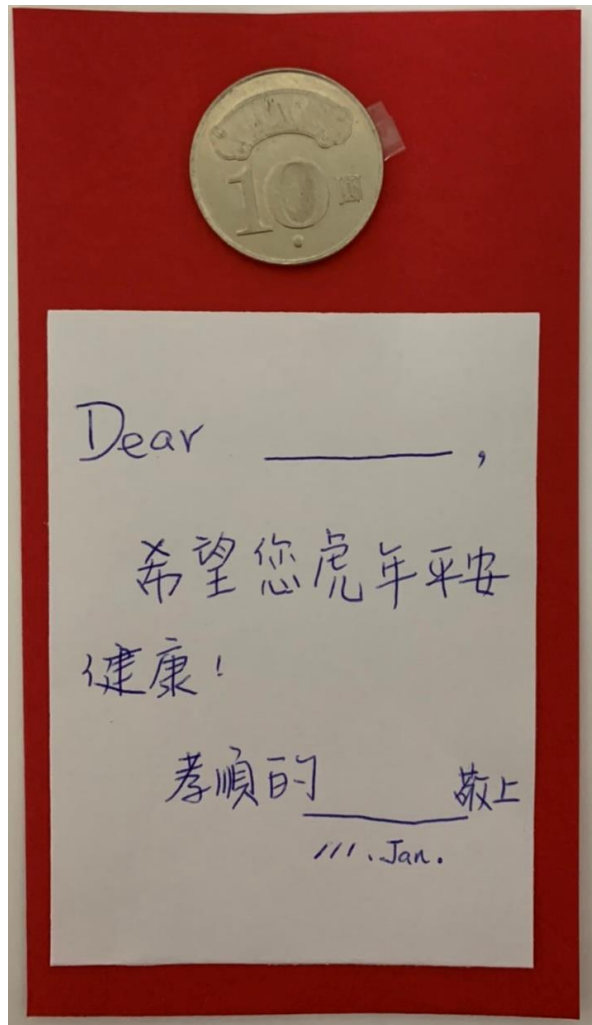 10圓
Dear ________,
希望您虎年平安
健康!
孝順的________敬上
111.Jan.